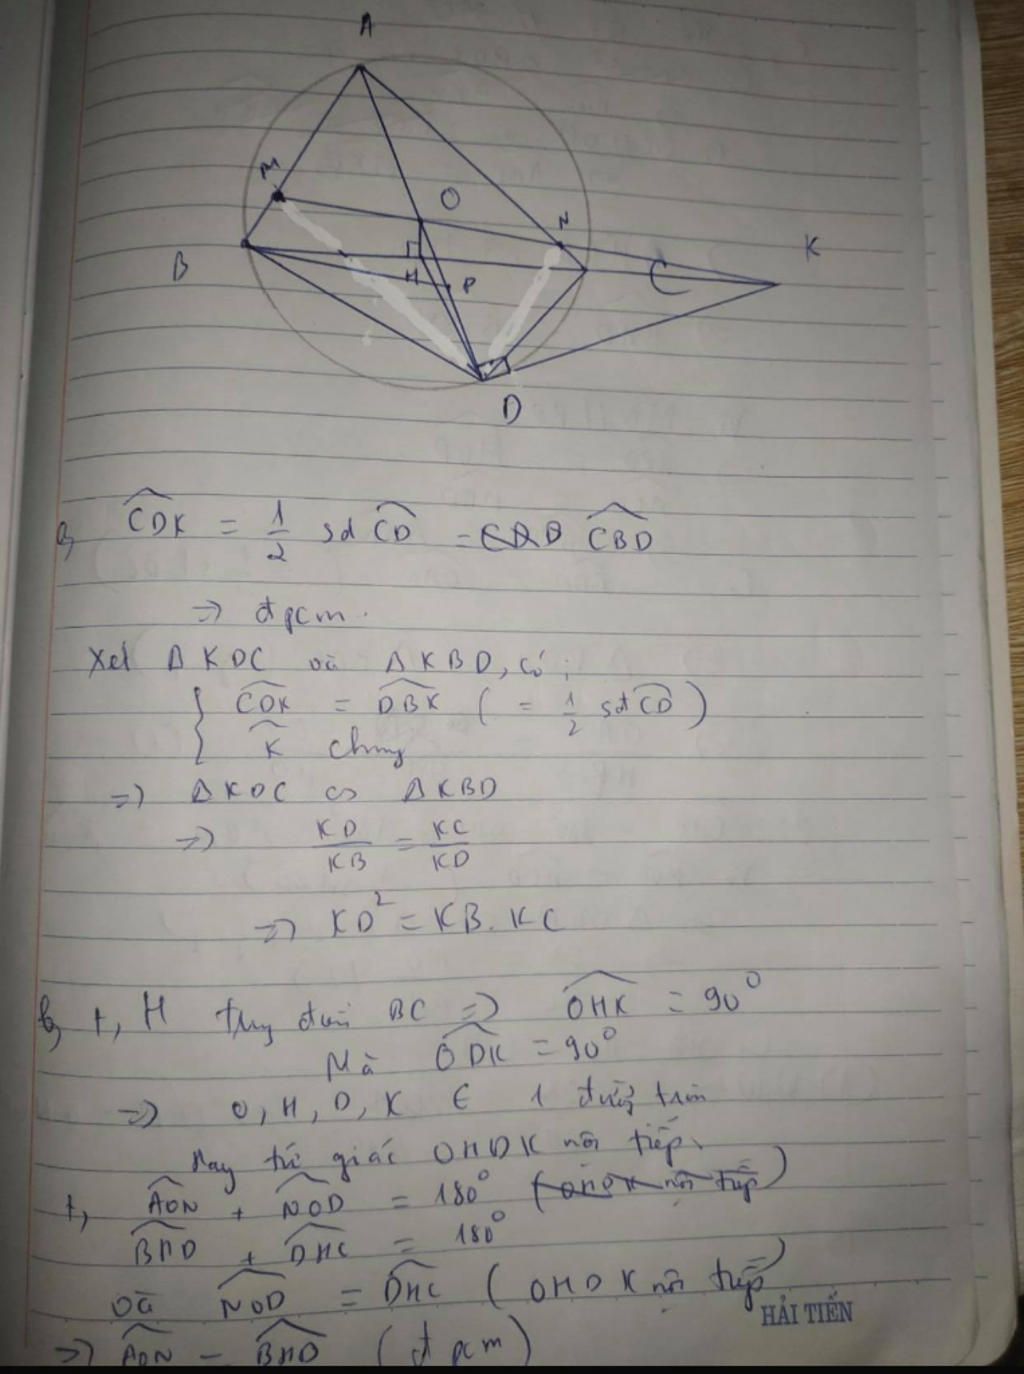 A
M
O
N
K
B
H
P
C
D
a, CDK = 1/2 sđ CD = CBD
=> đpcm.
Xét Δ KDC và Δ KBD, có:
{ CDK = DBK ( = 1/2 sđ CD )
K chung
=> Δ KDC ∽ Δ KBD
=> KD/KB = KC/KD
=> KD² = KB. KC
b, +, H trung điểm BC => OHK = 90°
Mà ODK = 90°
=> O, H, D, K ∈ 1 đường tròn
Hay tứ giác OHDK nội tiếp.
+, AON + NOD = 180° (OHDK nội tiếp)
BHD + DHC = 180°
và NOD = DHC ( OHDK nội tiếp)
=> AON = BHD (đpcm)
HẢI TIẾN